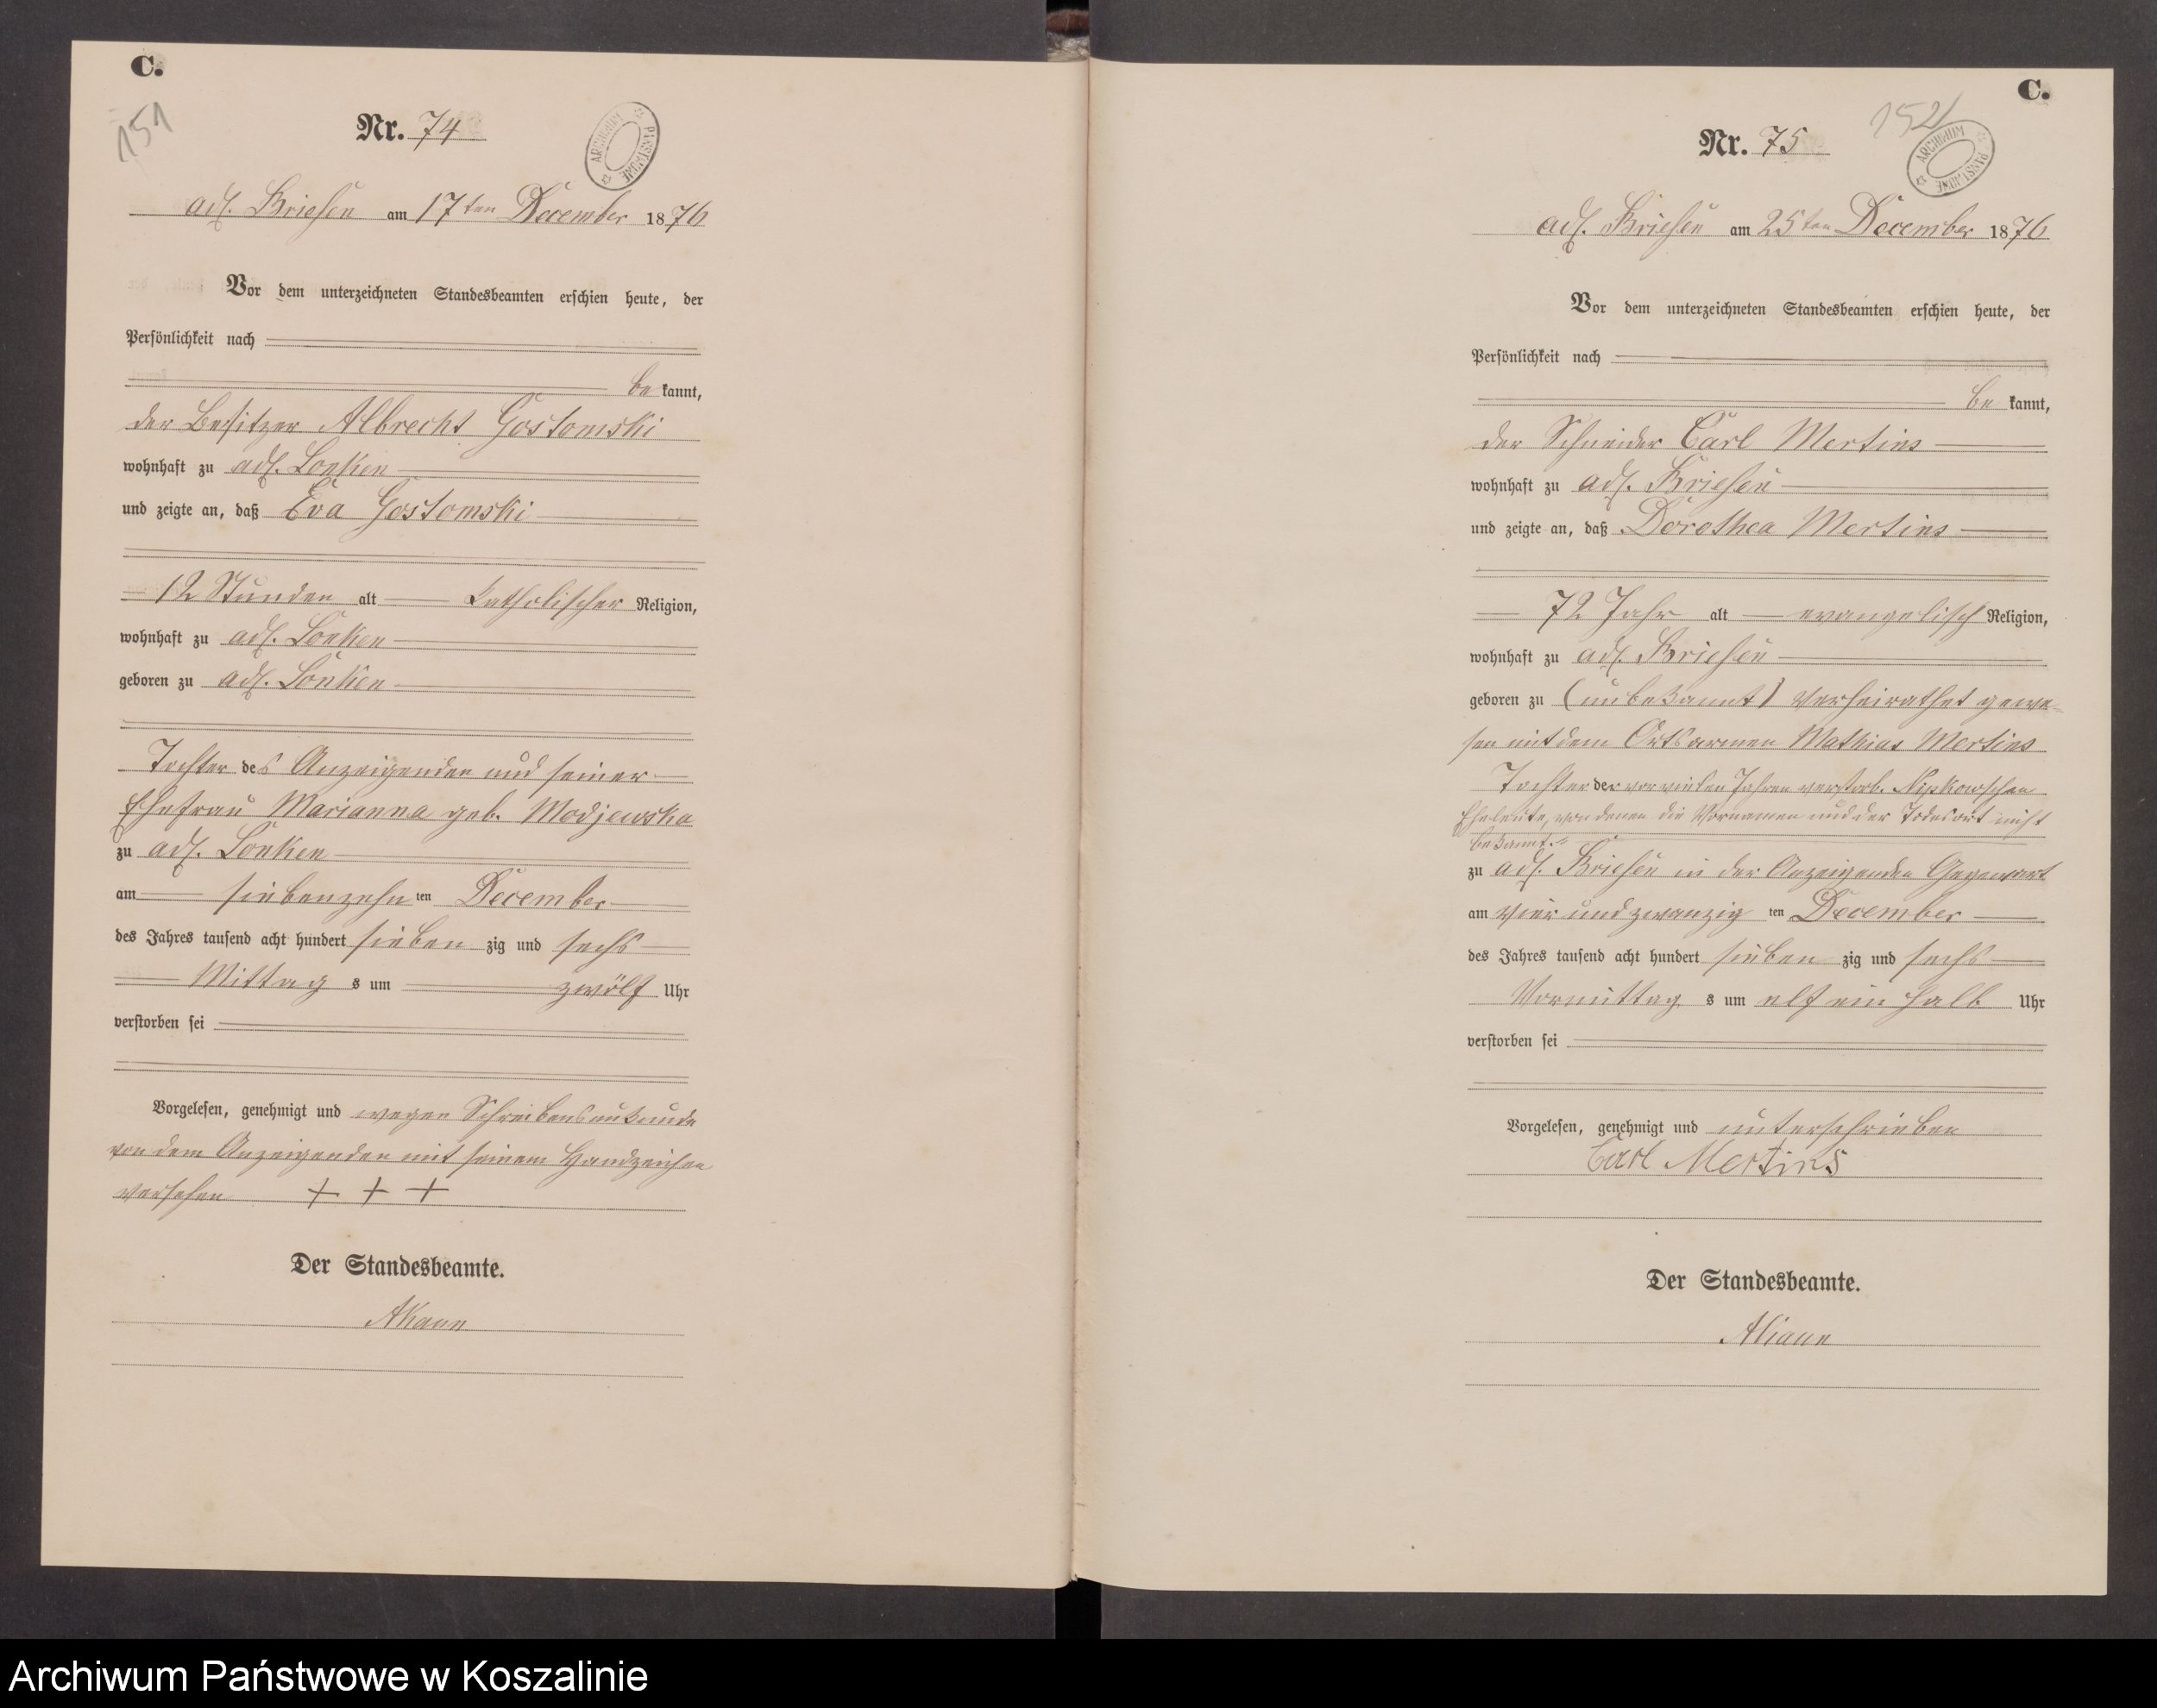 C.
151
Nr. 74
ARCHIWUM PAŃSTWOWE
adl. Briesen am 17ten December 1876
Vor dem unterzeichneten Standesbeamten erschien heute, der
Persönlichkeit nach
be kannt,
der Besitzer Albrecht Gostomski
wohnhaft zu adl. Lonken
und zeigte an, daß Eva Gostomski
12 Stunden alt katholischer Religion,
wohnhaft zu adl. Lonken
geboren zu adl. Lonken
Tochter des Anzeigenden und seiner
Ehefrau Marianna geb. Modjewska
zu adl. Lonken
am siebenzehn ten December
des Jahres tausend acht hundert sieben zig und sechs
Mittag s um zwölf Uhr
verstorben sei
Vorgelesen, genehmigt und wegen Schreibensunkunde
von dem Anzeigenden mit seinem Handzeichen
versehen + + +
Der Standesbeamte.
C.
152
Nr. 75
ARCHIWUM PAŃSTWOWE
adl. Briesen am 25ten December 1876
Vor dem unterzeichneten Standesbeamten erschien heute, der
Persönlichkeit nach
be kannt,
der Schneider Carl Mertins
wohnhaft zu adl. Briesen
und zeigte an, daß Dorothea Mertins
72 Jahr alt evangelisch Religion,
wohnhaft zu adl. Briesen
geboren zu (unbekannt) verheirathet gewe-
sen mit dem Ortsarmen Mathias Mertins
Tochter der vor vielen Jahren verstorb. Nipkowschen
Eheleute, von denen die Vornamen und der Todesort nicht
bekannt.
zu adl. Briesen in der Anzeigenden Gegenwart
am vier und zwanzig ten December
des Jahres tausend acht hundert sieben zig und sechs
Vormittag s um elf ein halb Uhr
verstorben sei
Vorgelesen, genehmigt und unterschrieben
Carl Mertins
Der Standesbeamte.
Archiwum Państwowe w Koszalinie